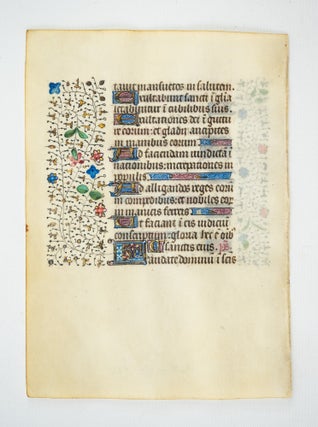 tavit mansuetos in salutem
Exultabunt sancti i gl'ia
letabuntur i cubilibus suis
Exultationes dei i guttu
re eorum: et gladii ancipites
in manibus eorum
Ad faciendam vindictã i
nationibus: increpationes in
populis
Ad alligandos reges eorũ
in compedibus: et nobiles eor
in manicis ferreis
Ut faciant i eis iudiciũ
conscriptum: gloria hec ẽ oĩb'
sanctis eius
Laudate dominũ i scis